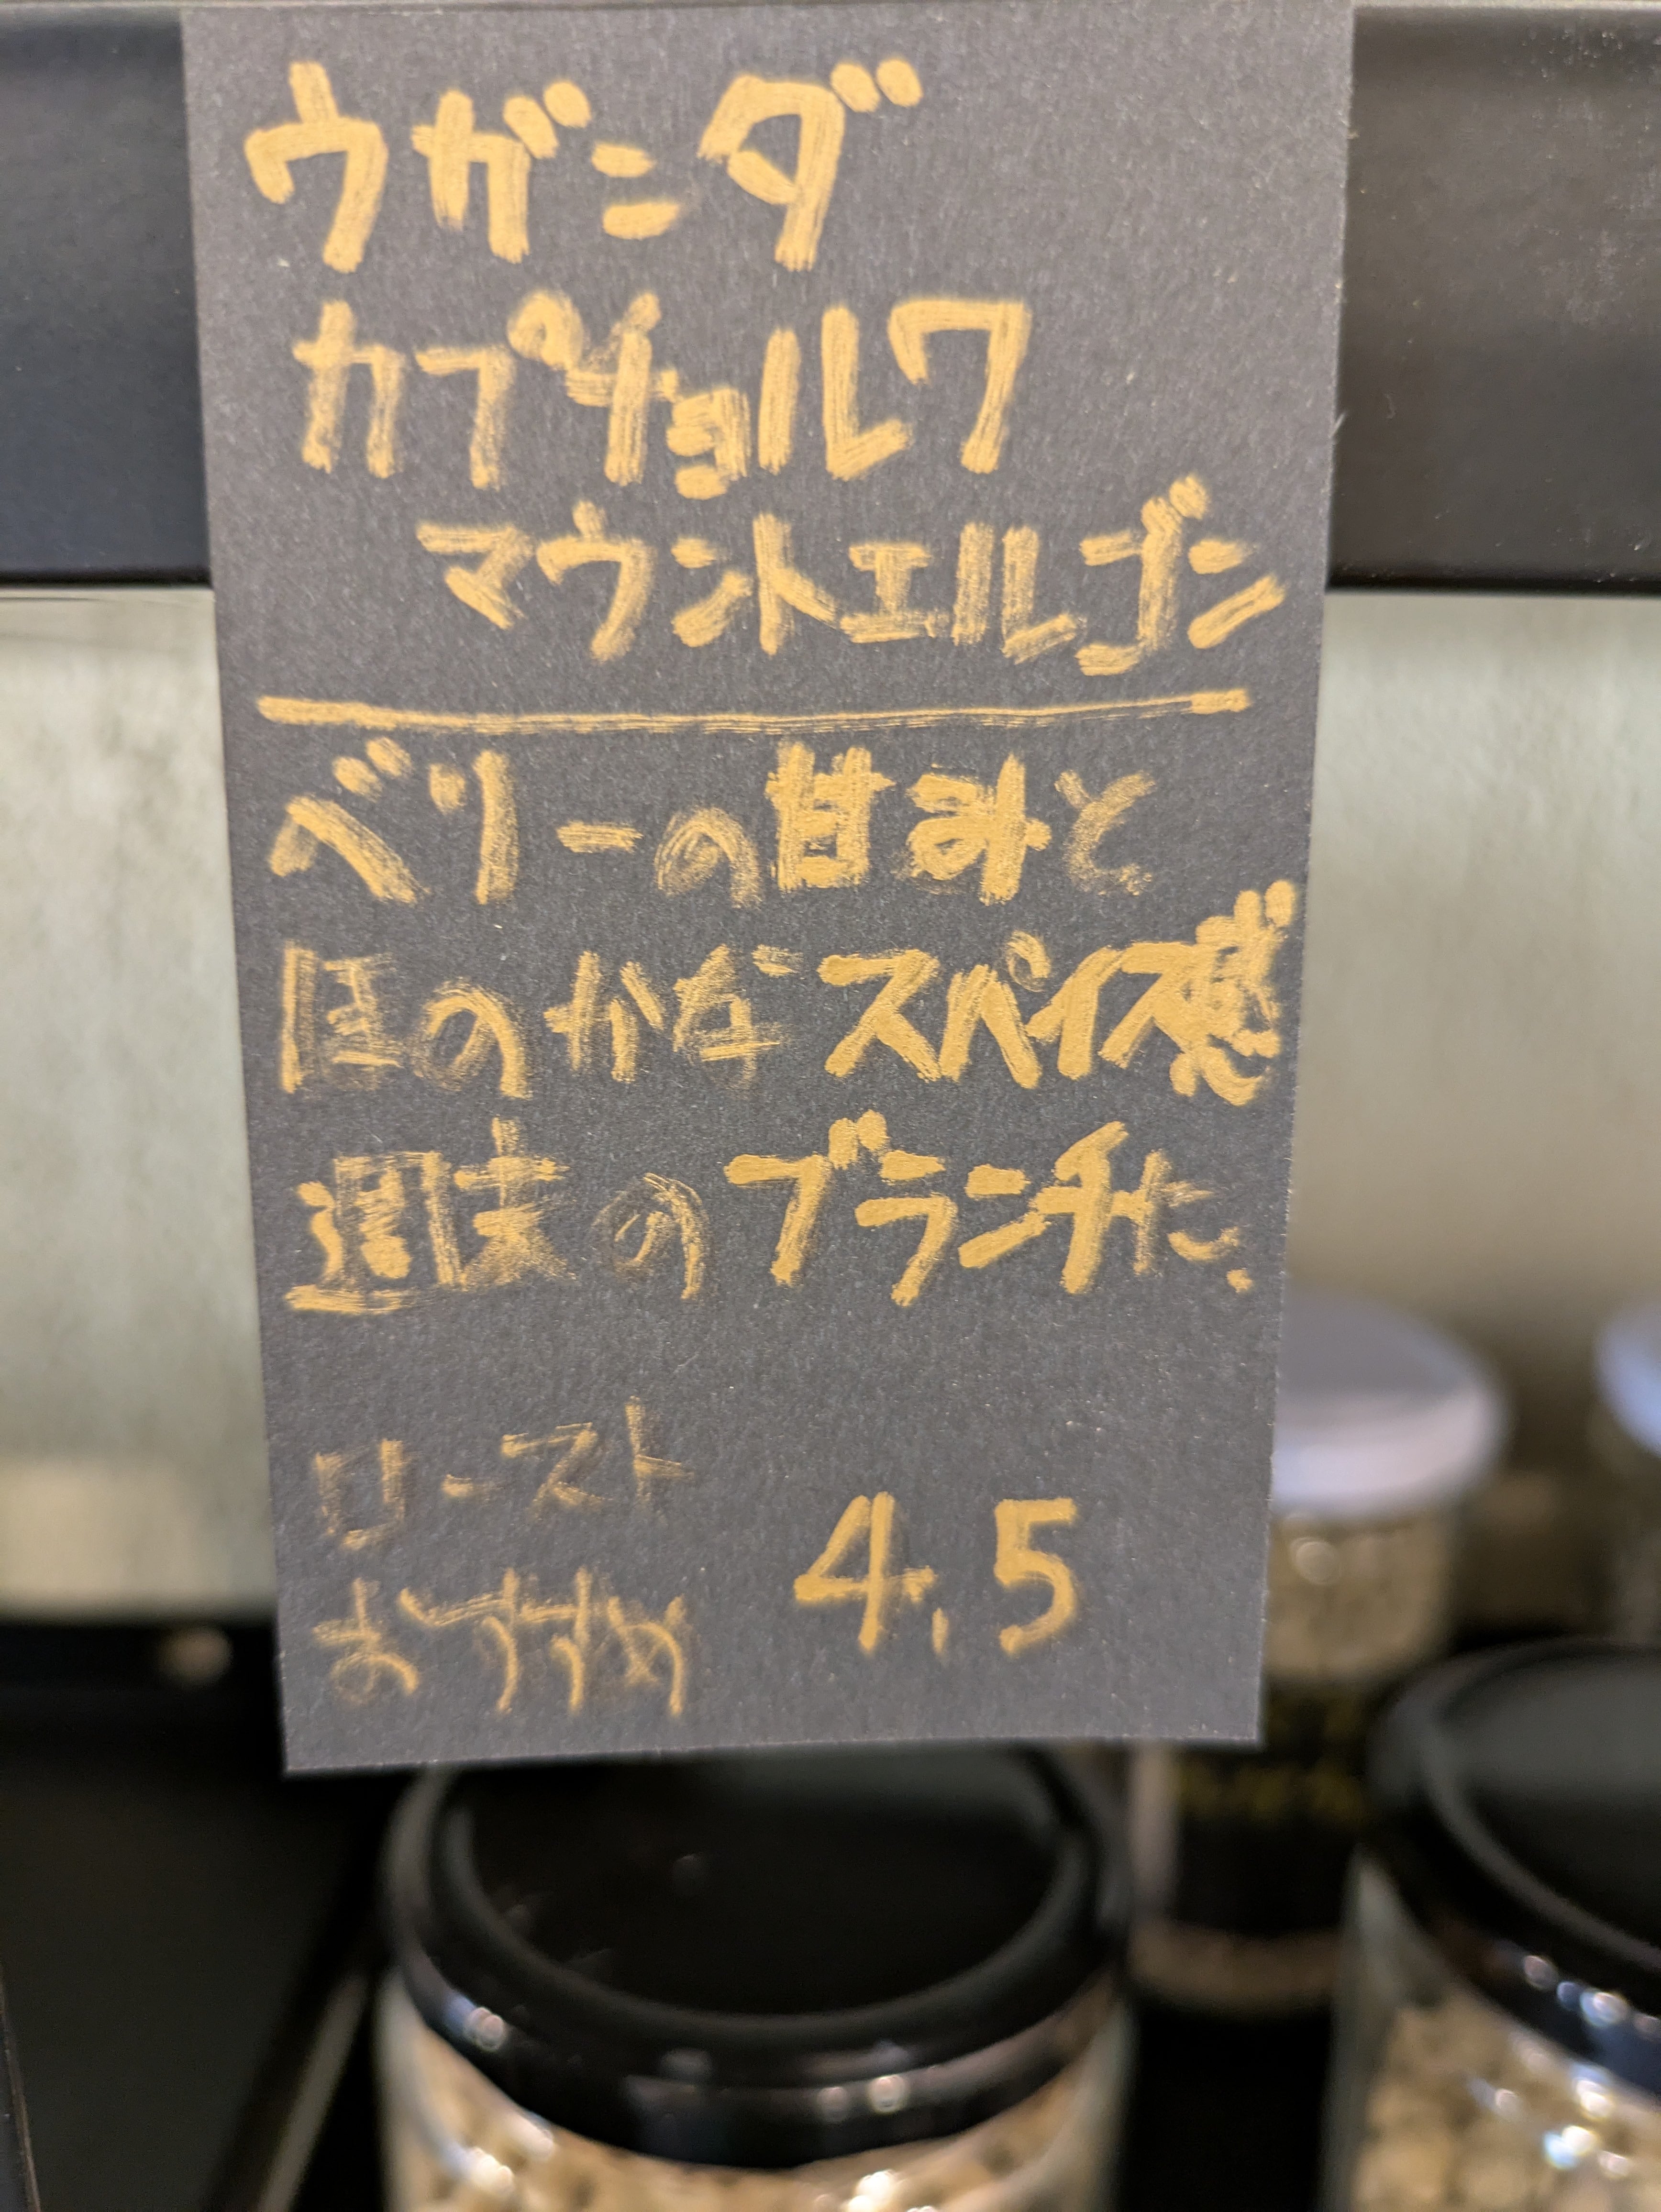 ウガンダ
カプチョルワ
マウントエルゴン
ベリーの甘みと
ほのかなスパイス感
週末のブランチに.
ロースト
おすすめ
4.5